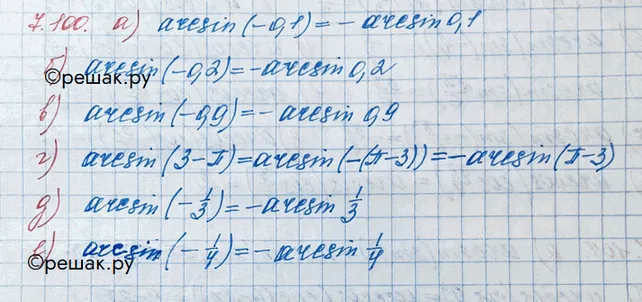 7.100. а) arcsin(-0,1) = - arcsin 0,1
б) arcsin(-0,2) = -arcsin 0,2
©решак.ру
в) arcsin(-0,9) = - arcsin 0,9
г) arcsin(3-π) = arcsin(-(π-3)) = -arcsin(π-3)
д) arcsin(-1/3) = -arcsin 1/3
е) arcsin(-1/4) = - arcsin 1/4
©решак.ру